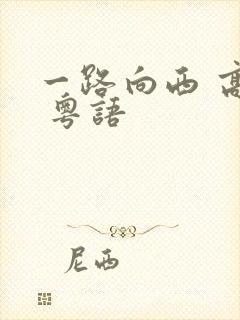 一路向西 高
粵語
尼西